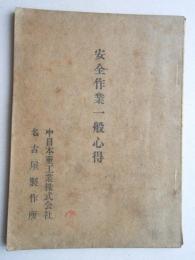 安全作業一般心得
中日本重工業株式会社
名古屋製作所